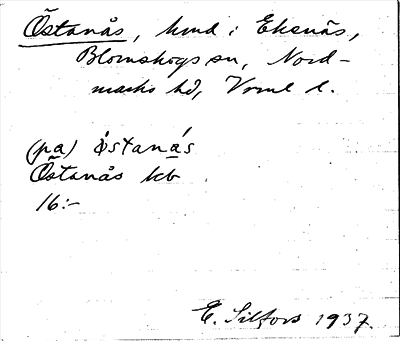 Östanås, hmd i Ekenäs,
Blomskogs sn, Nord-
marks hd, Vrml l.
(pa) östanás
Östanås kb
16:-
E. Silfors 1937.